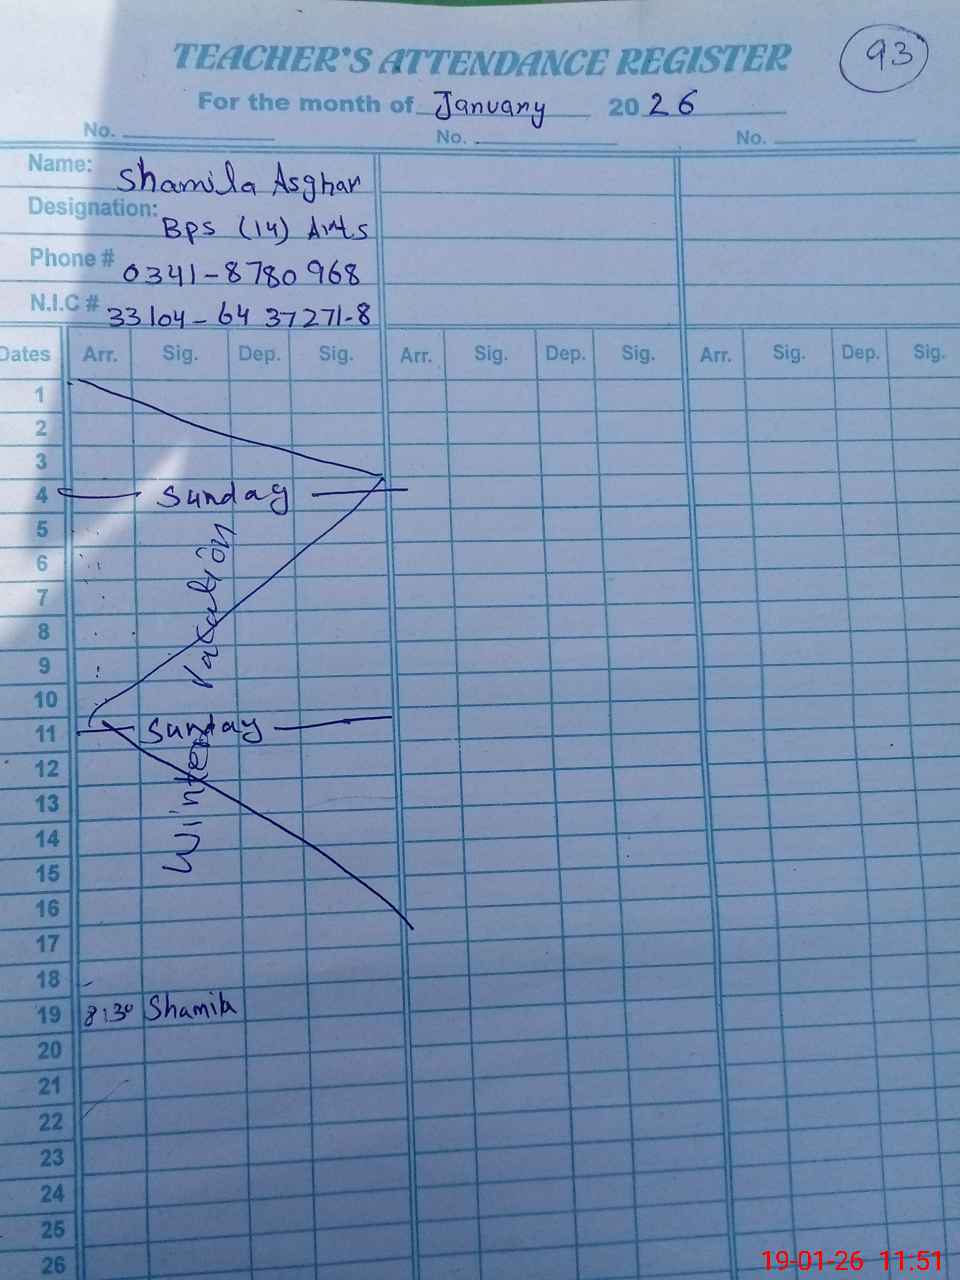 TEACHER'S ATTENDANCE REGISTER
93
For the month of January 2026
No. No. No.
Name: Shamila Asghar
Designation: Bps (14) Arts
Phone # 0341-8780968
N.I.C # 33104-6437271-8
Dates Arr. Sig. Dep. Sig. Arr. Sig. Dep. Sig. Arr. Sig. Dep. Sig.
1
2
3
4 Sunday
5
6
7
8
9
10
11 Sunday
12
13
14
15
16
17
18
19 8:30 Shamila
20
21
22
23
24
25
26
Winter Vacation
19-01-26 11.51